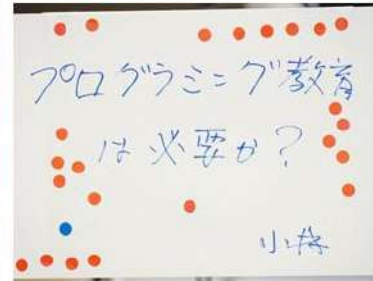 プログラミング教育
は必要か?
小林